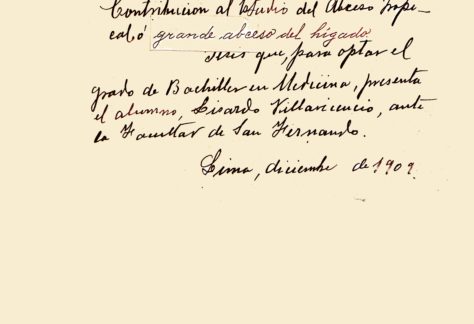 Contribucion al Estudio del Abceso tropi-
cal ó grande abceso del higado
Tesis que, para optar el
grado de Bachiller en Medicina, presenta
el alumno, Lisardo Villavicencio, ante
la Facultad de San Fernando.
Lima, diciembre de 1909.